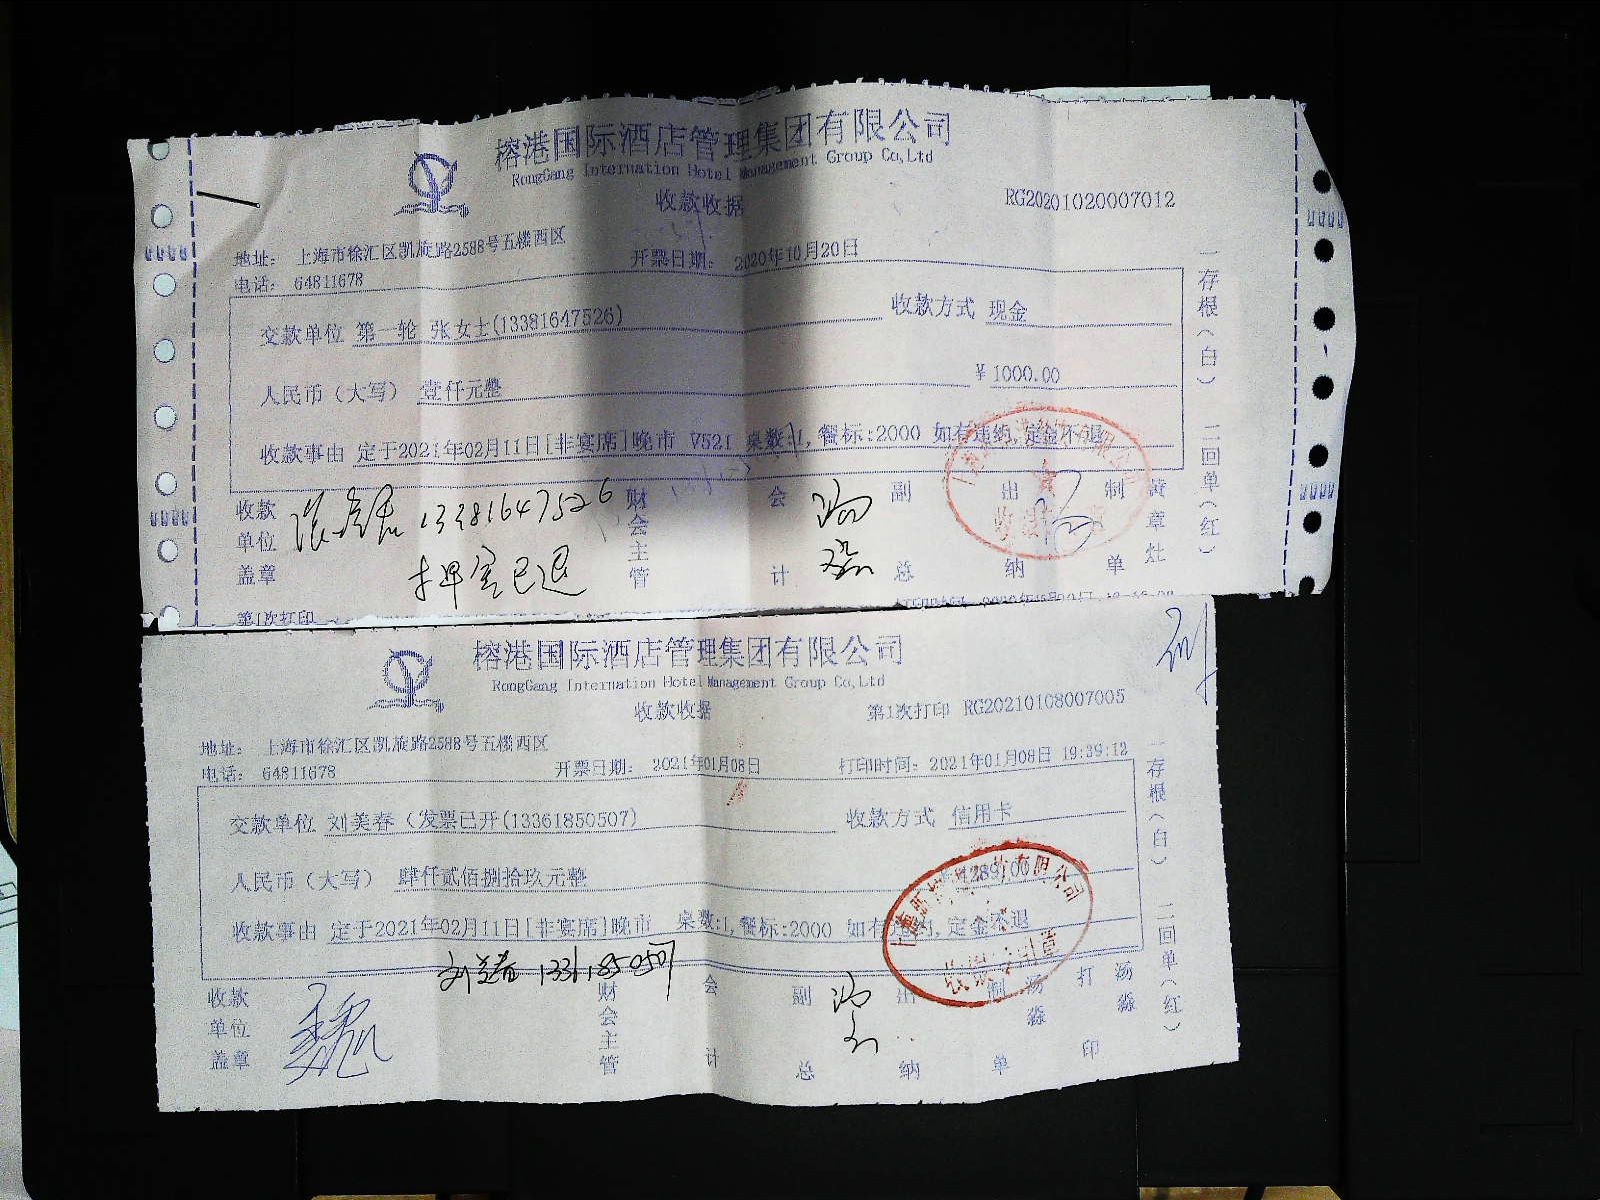 榕港国际酒店管理集团有限公司
RongGang Internation Hotel Management Group Co,Ltd
收款收据
RG20201020007012
地址： 上海市徐汇区凯旋路2588号五楼西区
电话： 64811678
开票日期： 2020年10月20日
交款单位 第一轮 张女士(13381647526)
收款方式 现金
人民币（大写） 壹仟元整
￥1000.00
收款事由 定于2021年02月11日[非宴席]晚市 V521 桌数:1,餐标:2000 如有违约,定金不退
一存根（白） 二回单（红）
收款单位盖章
13381647526
押金已退
财会主管
会计
副总
出纳
制单
黄章灶
第1次打印
榕港国际酒店管理集团有限公司
RongGang Internation Hotel Management Group Co,Ltd
收款收据
第1次打印 RG20210108007005
地址： 上海市徐汇区凯旋路2588号五楼西区
电话： 64811678
开票日期： 2021年01月08日
打印时间：2021年01月08日 19:39:12
交款单位 刘美春（发票已开(13361850507)
收款方式 信用卡
人民币（大写） 肆仟贰佰捌拾玖元整
4289.00
收款事由 定于2021年02月11日[非宴席]晚市 桌数:1,餐标:2000 如有违约,定金不退
一存根（白） 二回单（红）
刘美春 13361850507
收款单位盖章
财会主管
会计
副总
出纳
制单
汤淼
打印
汤淼